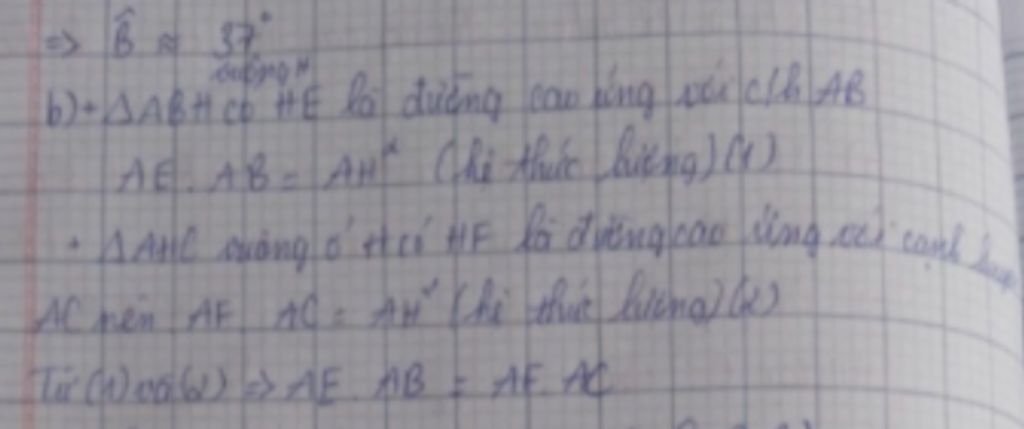 => B̂ ≈ 37°
vuông H
b) + ΔABH có HE là đường cao ứng với c/h AB
AE . AB = AH² (hệ thức lượng) (1)
+ ΔAHC vuông ở H có HF là đường cao ứng với cạnh huyền
AC nên AF . AC = AH² (hệ thức lượng) (2)
Từ (1) và (2) => AE . AB = AF . AC